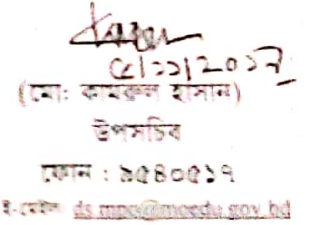 ০৫/১১/২০১৭
(মো: কামরুল হাসান)
উপসচিব
ফোন : ৯৫৪০৫১৭
ই-মেইল ds.mpo@moedu.gov.bd